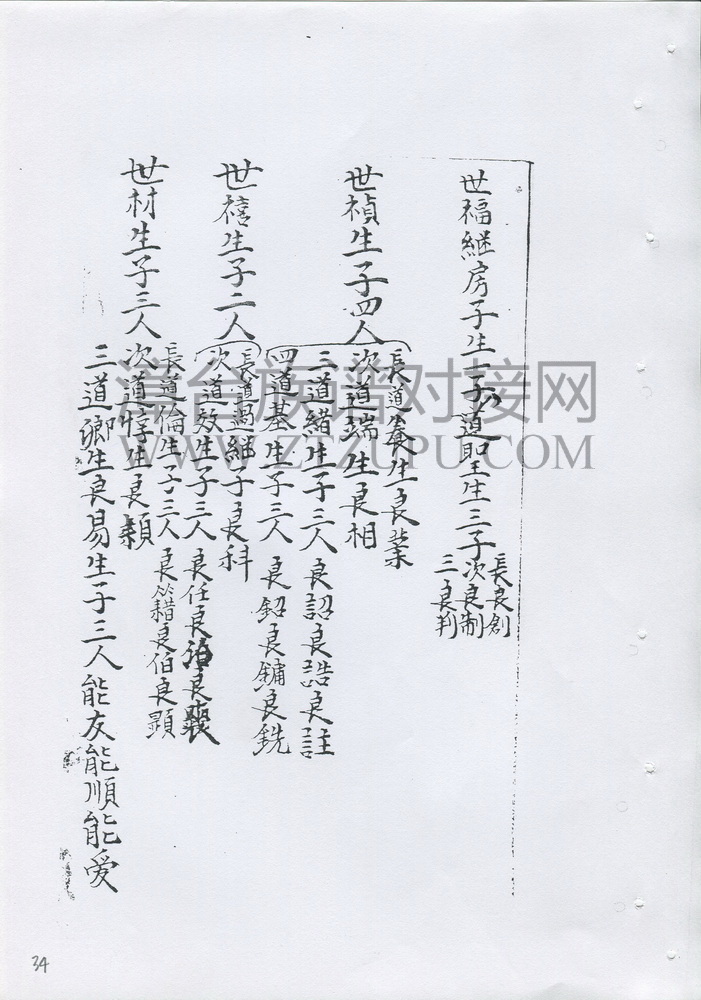 世福継房子生一子道聖生三子
長良創
次良制
三良判
世禎生子四人
長道養生良葉
次道端生良相
三道緒生子三人良詔良誥良註
四道基生子三人良鉊良鋪良銑
世禧生子二人
長道過継子良科
次道效生子三人良任良伯良
世材生子三人
長道倫生子三人良籍良伯良顕
次道惇生良頼
三道卿生良易生子三人能友能順能爱
34
寻台族谱对接网
WWW.ZTZUPU.COM